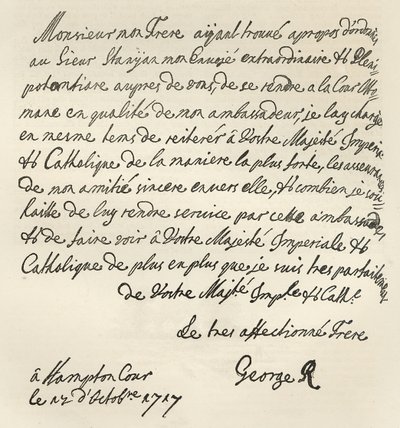 Monsieur mon Frere aijant trouvé a propos d'ordoñer
au Sieur Stanijan mon Envoijé extraordinaire et Pleni
potentiaire aupres de vous, de se rendre a la Cour Otto
mane en qualité de mon ambassadeur, je l'aij chargé
en mesme tems de reiterér â Vostre Majesté Imperiale
et Catholique de la maniere la plus forte, les asseurances
de mon amitié sincere envers elle, et combien je sou
haitte de luy rendre service par cette ambassade,
et de faire voir â Vostre Majesté Imperiale et
Catholique de plus en plus que je suis tres parfaitement
de Vostre Maj.té Imp.le et Cath.e
Le tres affectionné Frere
George R
â Hampton Cour
le 12 d'Octob.re 1717